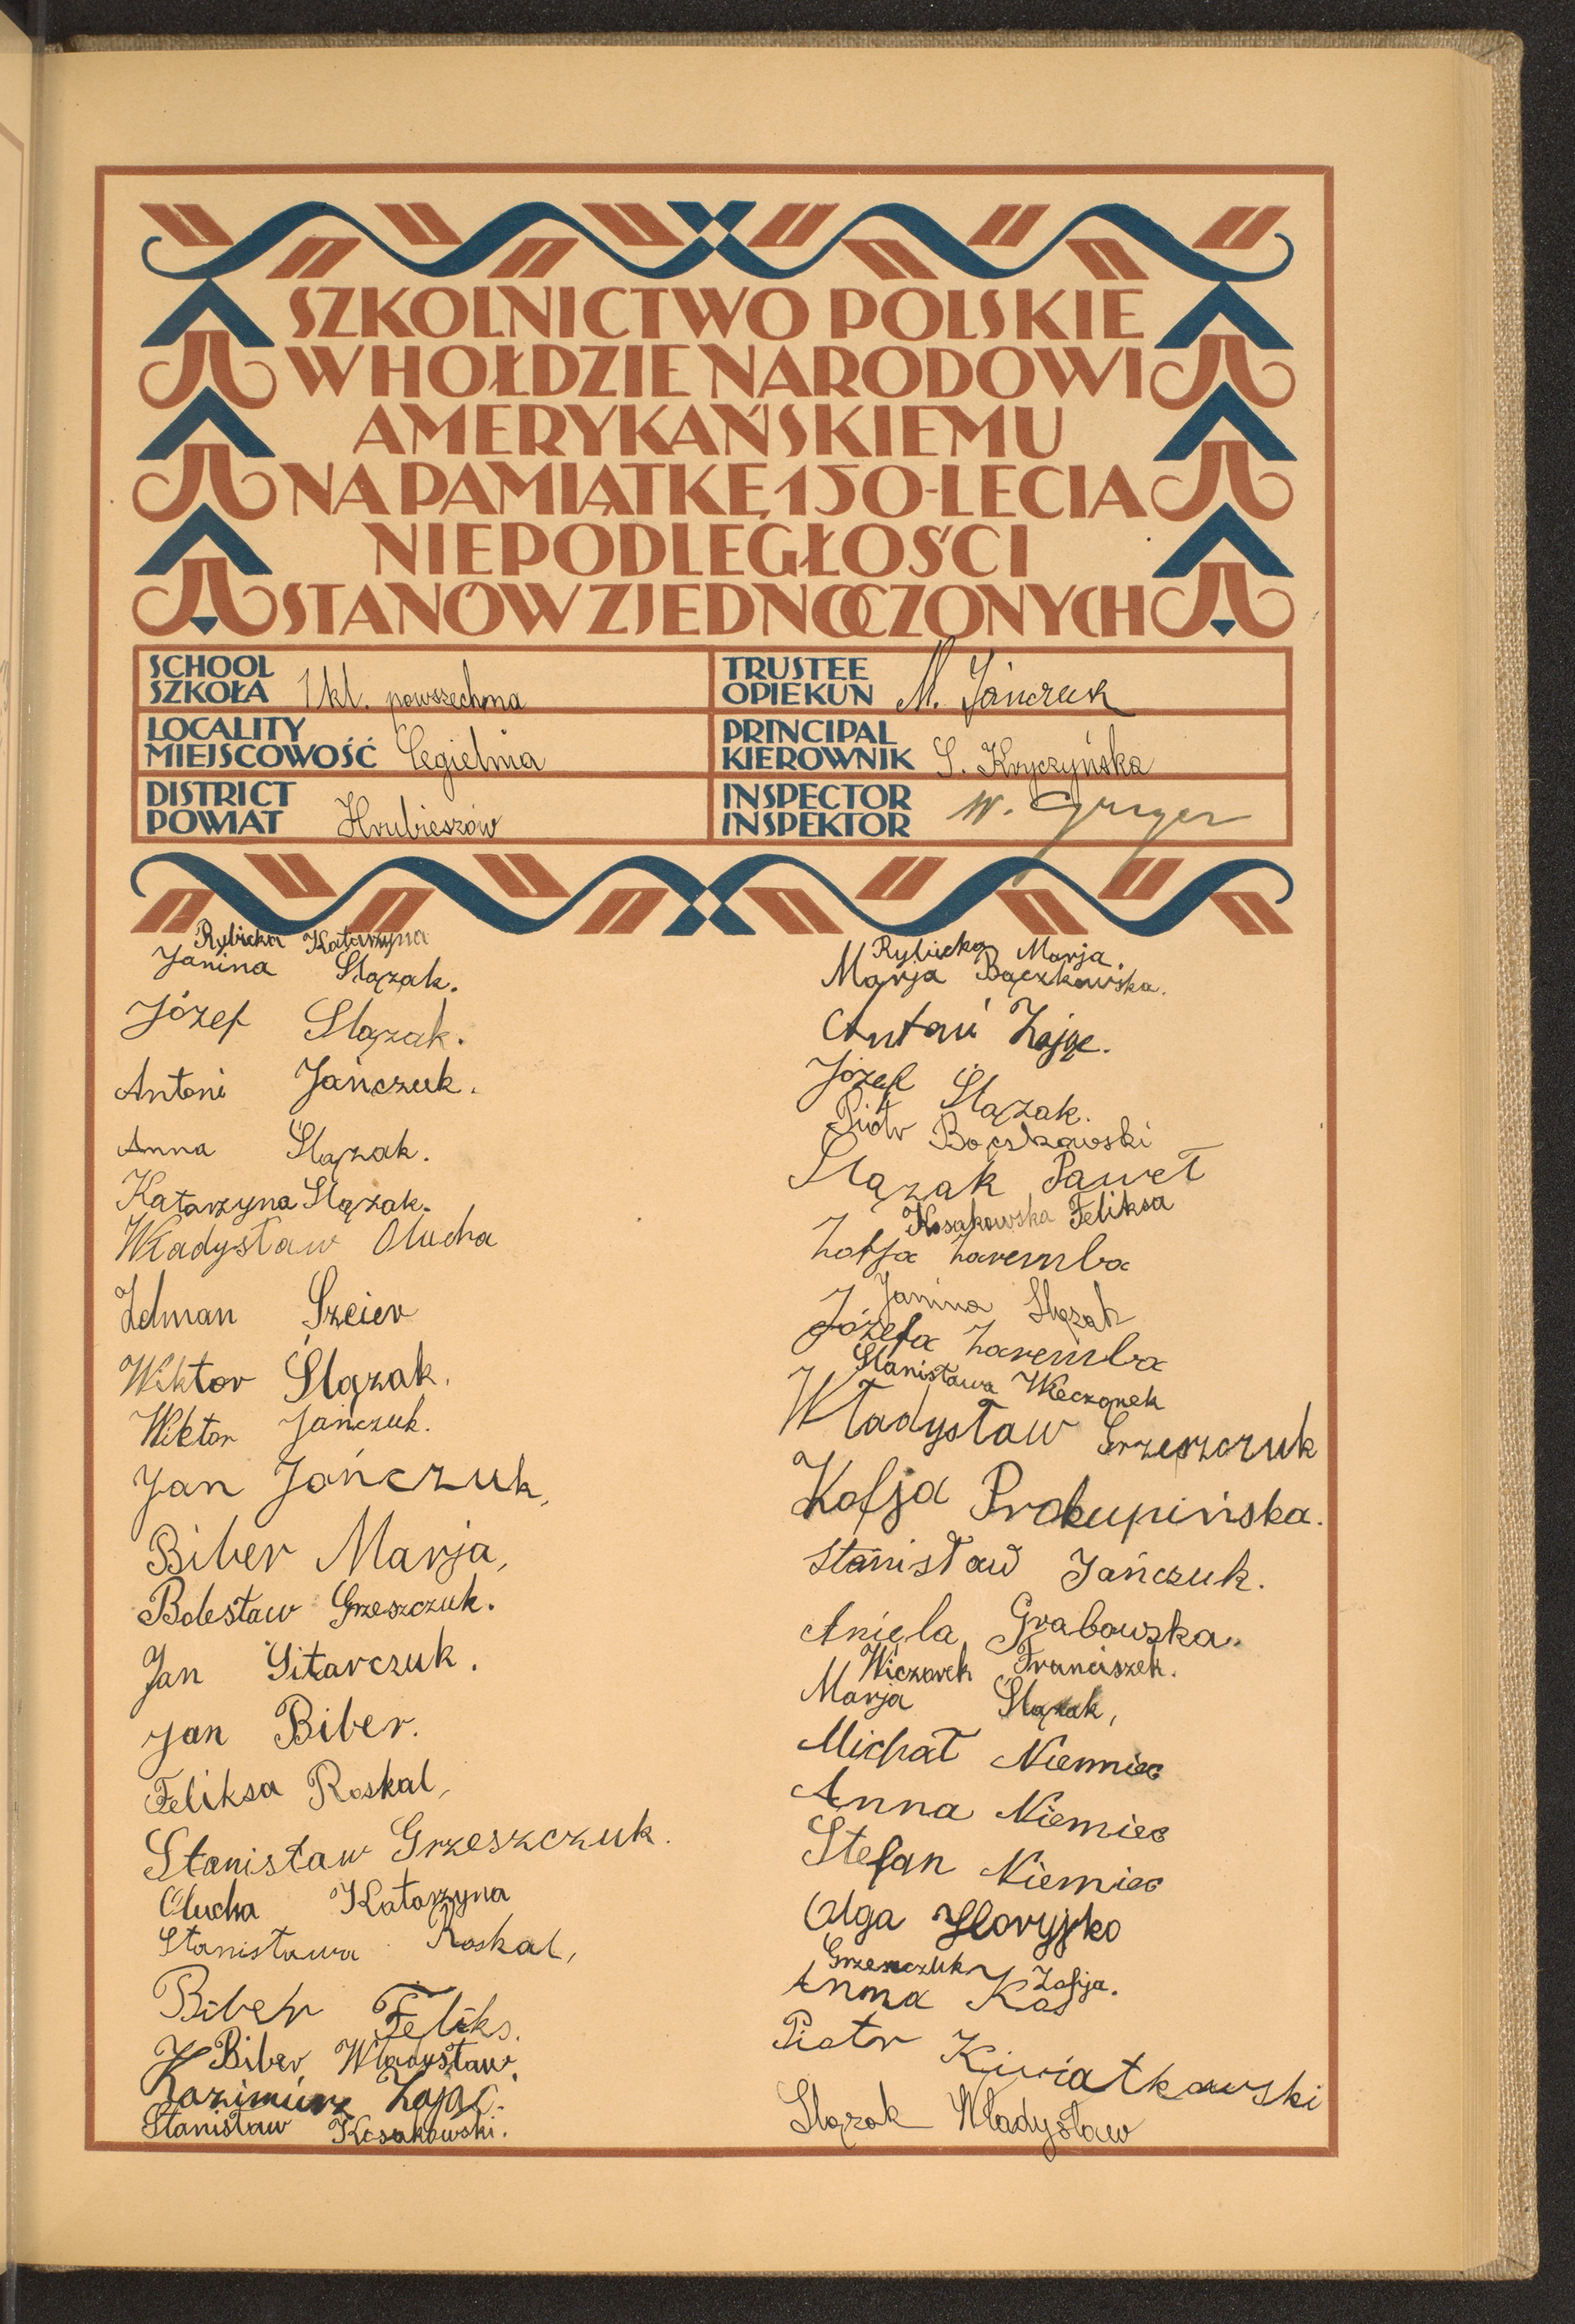 SZKOLNICTWO POLSKIE
W HOŁDZIE NARODOWI
AMERYKAŃSKIEMU
NA PAMIĄTKĘ 150-LECIA
NIEPODLEGŁOŚCI
STANÓW ZJEDNOCZONYCH
SCHOOL
SZKOŁA 1 kl. powszechna
TRUSTEE
OPIEKUN M. Jańczuk
LOCALITY
MIEJSCOWOŚĆ Cegielnia
PRINCIPAL
KIEROWNIK S. Kryczyńska
DISTRICT
POWIAT Hrubieszów
INSPECTOR
INSPEKTOR W.
Rybicka Katarzyna
Janina Ślązak.
Józef Ślązak.
Antoni Jańczuk.
Anna Ślązak.
Katarzyna Ślązak.
Władysław Olucha
Zelman Szeier
Wiktor Ślązak.
Wiktor Jańczuk.
Jan Jańczuk,
Biber Marja,
Bolesław Grzeszczuk.
Jan Sitarczuk.
Jan Biber.
Feliksa Roskal,
Stanisław Grzeszczuk.
Olucha Katarzyna
Stanisława Roskal,
Biber Feliks.
Biber Władysław.
Kazimierz Zając.
Stanisław Kosakowski.
Rybicka Marja.
Marja Bączkowska.
Antoni Zając.
Józef Ślązak.
Piotr Bączkowski
Ślązak Paweł
Kosakowska Feliksa
Zofja Zaremba
Janina Ślązak
Józefa Zaremba
Stanisława Wieczorek
Władysław Grzeszczuk
Zofja Prokupińska.
Stanisław Jańczuk.
Aniela Grabowska.
Wiczorek Franciszek.
Marja Ślązak,
Michał Niemiec
Anna Niemiec
Stefan Niemiec
Olga
Grzeszczuk Zofja.
Anna Kos
Piotr Kwiatkowski
Ślązak Władysław